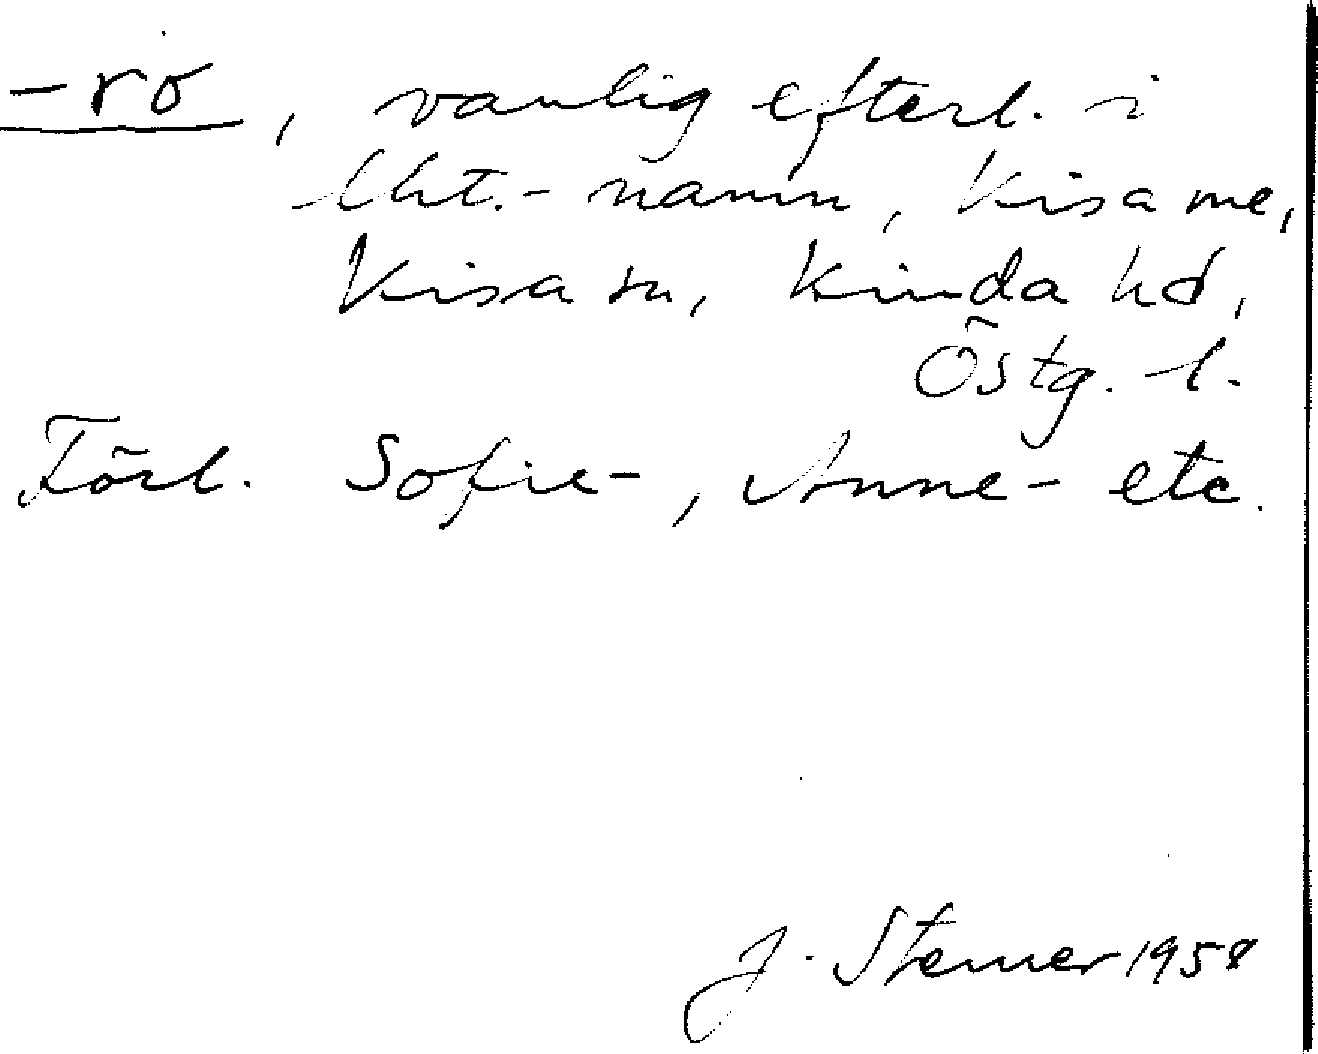 -ro, vanlig efterl. i
lht.-namn, Kisa me,
Kisa sn, Kinda hd,
Östg. l.
Förl. Sofie-, Anne- etc.
J. Sterner 1958